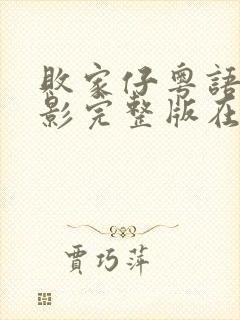 敗家仔粵語
影完整版在
賈巧萍